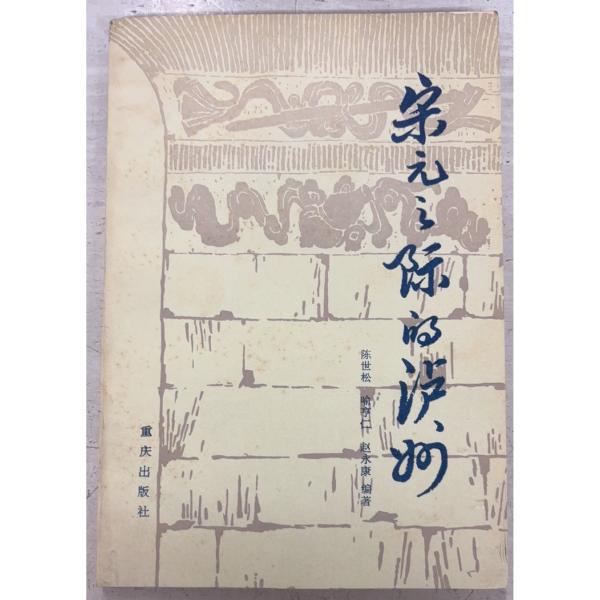 宋元之际的泸州
陈世松 喻亨仁 赵永康 编著
重庆出版社